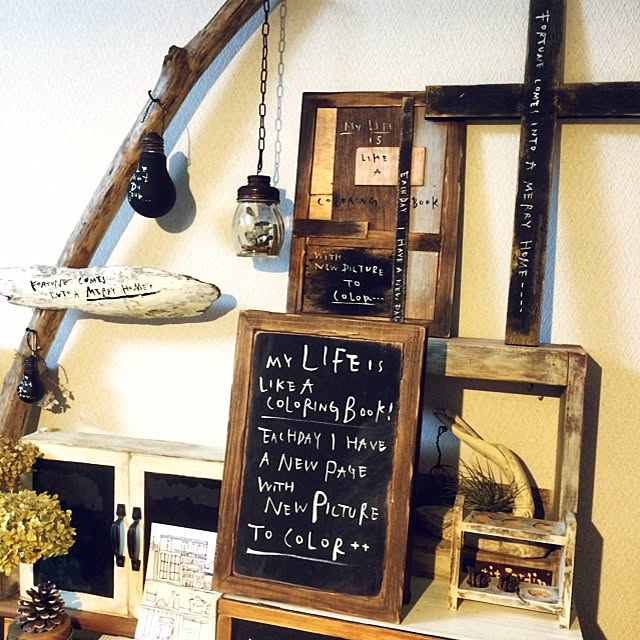 MY LIFE
IS
LIKE
A
COLORING BOOK
EACHDAY I HAVE A NEW PAGE
WITH
NEW PICTURE
TO
COLOR...
FORTUNE COMES INTO A MERRY HOME----
FORTUNE COMES
INTO A MERRY HOME!
MY LIFE IS
LIKE A
COLORING BOOK!
EACHDAY I HAVE
A NEW PAGE
WITH
NEW PICTURE
TO COLOR++